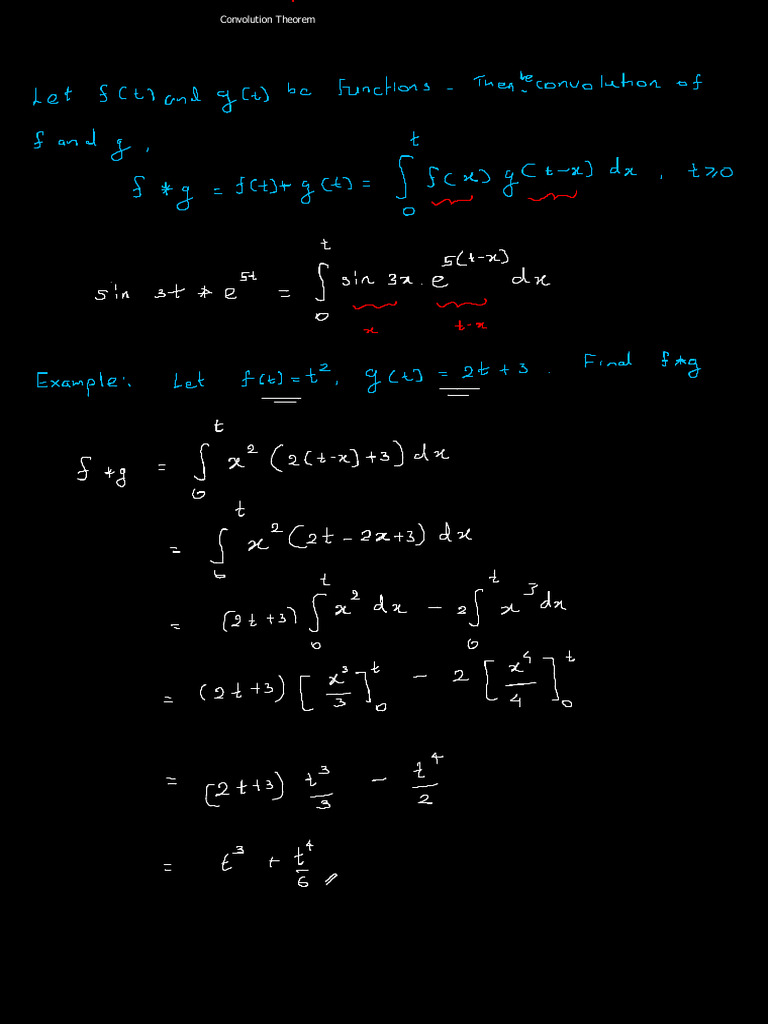 Convolution Theorem
Let f(t) and g(t) be functions. Then the convolution of
f and g,
f * g = f(t) * g(t) = ∫₀ᵗ f(x) g(t-x) dx, t ≥ 0
sin 3t * e^{5t} = ∫₀ᵗ sin 3x . e^{5(t-x)} dx
x t-x
Example: Let f(t) = t², g(t) = 2t + 3. Final f*g
f * g = ∫₀ᵗ x² (2(t-x) + 3) dx
= ∫₀ᵗ x² (2t - 2x + 3) dx
= (2t + 3) ∫₀ᵗ x² dx - 2 ∫₀ᵗ x³ dx
= (2t + 3) [x³/3]₀ᵗ - 2 [x⁴/4]₀ᵗ
= (2t + 3) t³/3 - t⁴/2
= t³ + t⁴/6 //